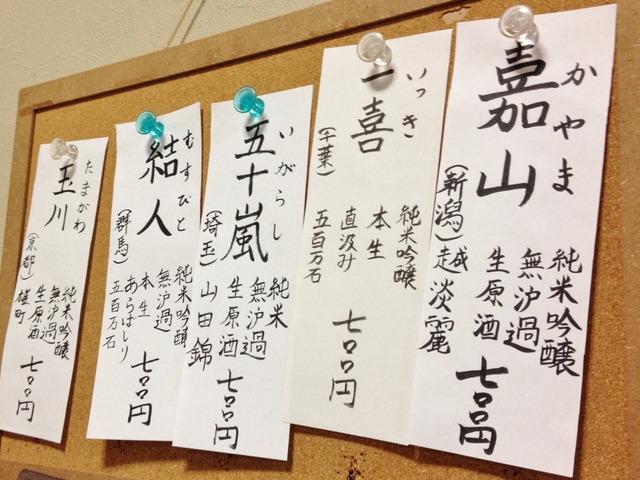 嘉山
かやま
純米吟醸
無沪過
生原酒
(新潟)越淡麗
七〇〇円
一喜
いっき
純米吟醸
本生
直汲み
五百万石
(千葉)
七〇〇円
五十嵐
いがらし
純米
無沪過
生原酒
(埼玉)山田錦
七〇〇円
結人
むすびと
純米吟醸
無沪過
本生
あらばしり
五百万石
(群馬)
七〇〇円
玉川
たまがわ
純米吟醸
無沪過
生原酒
(京都)雄町
七〇〇円